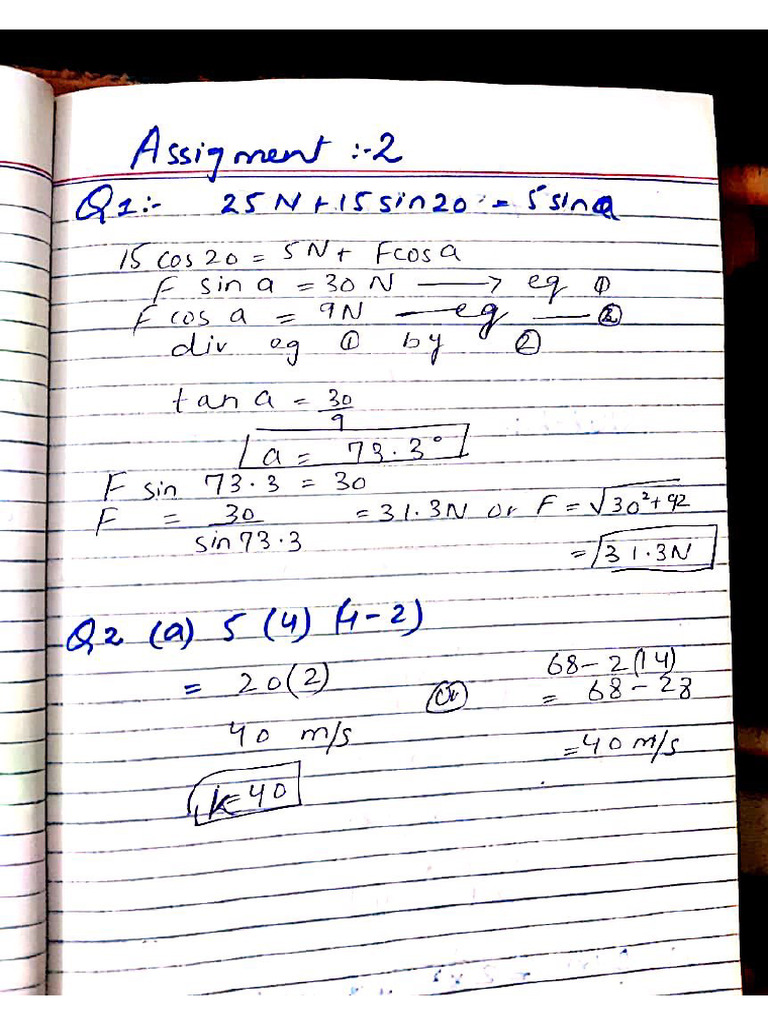 Assigment :-2
Q1:- 25N+15sin20 = 5sina
15 cos20 = 5N+ Fcosa
F sin a = 30N → eq ①
F cos a = 9N — eq — ②
div eq ① by ②
tan a = 30/9
a = 73.3°
F sin 73.3 = 30
F = 30/sin73.3 = 31.3N or F = √30²+92
= 31.3N
Q2 (a) 5 (4) (4-2)
= 20(2) or 68-2(14)
= 68-28
40 m/s =40m/s
k=40